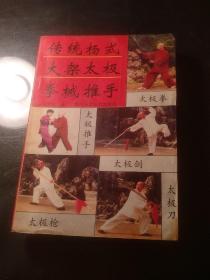 传统杨式
大架太极
拳械推手
太极拳
太极推手
太极剑
太极刀
太极枪